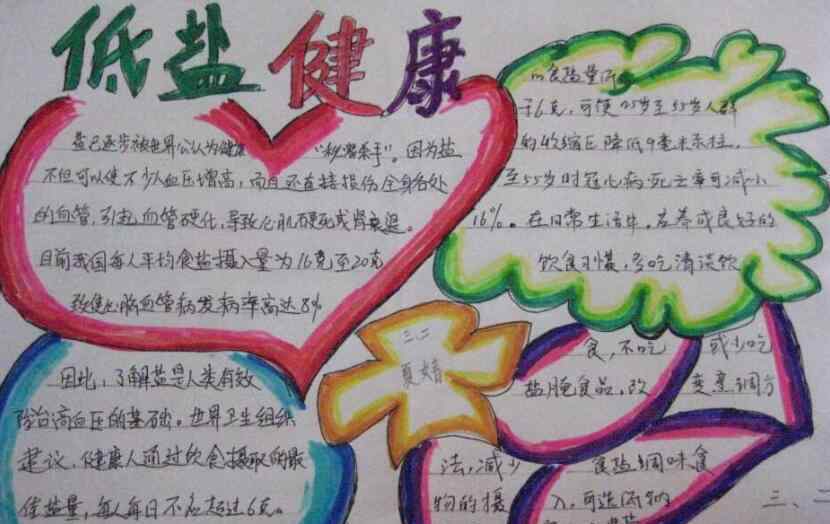 低盐健康
盐已逐步被世界公认为健康 "秘密杀手"。因为盐
不但可以使不少人血压增高，而且还直接损伤全身各处
的血管，引起血管硬化，导致心肌梗死或肾衰退。
目前我国每人平均食盐摄入量为16克至20克
致使心脑血管病发病率高达8%
因此，了解盐是人类有效
防治高血压的基础。世界卫生组织
建议，健康人通过饮食摄取的最
佳盐量，每人每日不应超过6克。
食盐量
于6克，可使25岁至55岁人群
的收缩压降低9毫米汞柱，
至55岁时冠心病死亡率可减小
16%。在日常生活中，应养成良好的
饮食习惯，多吃清淡饮
食，不吃 或少吃
盐腌食品，改 变烹调方
法，减少 食盐调味食
物的摄 入，可选低钠
三、二
夏婧
三、二